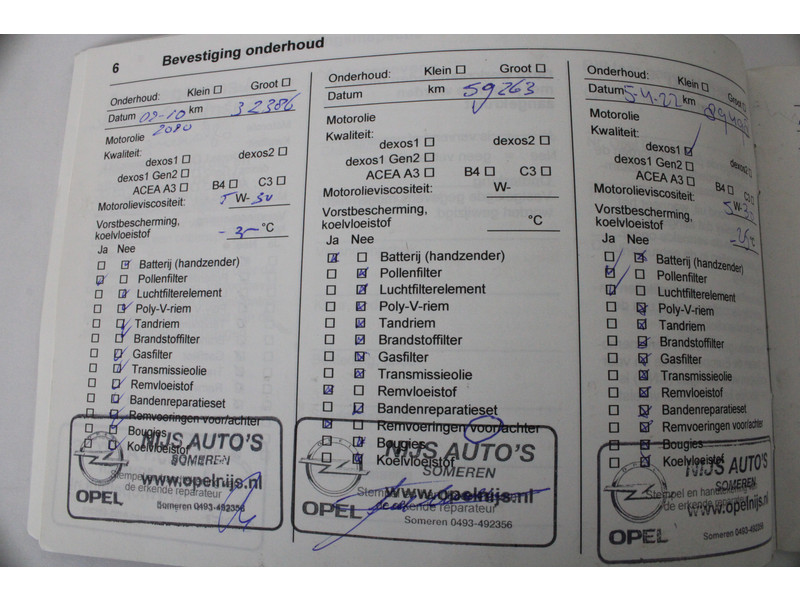 6 Bevestiging onderhoud
Onderhoud: Klein ☐ Groot ☐
Datum 09-10 km 32386
2020
Motorolie
Kwaliteit:
dexos1 ☐ dexos2 ☐
dexos1 Gen2 ☐
ACEA A3 ☐ B4 ☐ C3 ☐
Motorolieviscositeit: 5 W- 30
Vorstbescherming,
koelvloeistof °C
Ja Nee
Batterij (handzender)
Pollenfilter
Luchtfilterelement
Poly-V-riem
Tandriem
Brandstoffilter
Gasfilter
Transmissieolie
Remvloeistof
Bandenreparatieset
Remvoeringen voor/achter
Bougies
Koelvloeistof
Stempel
de erkende reparateur
NIJS AUTO'S
SOMEREN
www.opelnijs.nl
OPEL
Someren 0493-492356
Onderhoud: Klein ☐ Groot ☐
Datum km 59263
Motorolie
Kwaliteit:
dexos1 ☐ dexos2 ☐
dexos1 Gen2 ☐
ACEA A3 ☐ B4 ☐ C3 ☐
Motorolieviscositeit: W-
Vorstbescherming,
koelvloeistof °C
Ja Nee
Batterij (handzender)
Pollenfilter
Luchtfilterelement
Poly-V-riem
Tandriem
Brandstoffilter
Gasfilter
Transmissieolie
Remvloeistof
Bandenreparatieset
Remvoeringen voor/achter
Bougies
Koelvloeistof
Stempel
erkende reparateur
NIJS AUTO'S
SOMEREN
www.opelnijs.nl
OPEL
Someren 0493-492356
Onderhoud: Klein ☐ Groot ☐
Datum 5-4-22 km
Motorolie
Kwaliteit:
dexos1 ☑ dexos2 ☐
dexos1 Gen2 ☐
ACEA A3 ☐ B4 ☐ C3 ☐
Motorolieviscositeit: 5 W-30
Vorstbescherming,
koelvloeistof
Ja Nee
Batterij (handzender)
Pollenfilter
Luchtfilterelement
Poly-V-riem
Tandriem
Brandstoffilter
Gasfilter
Transmissieolie
Remvloeistof
Bandenreparatieset
Remvoeringen voor/achter
Bougies
Koelvloeistof
Stempel en
de erkende reparateur
NIJS AUTO'S
SOMEREN
www.opelnijs.nl
OPEL
Someren 0493-492356